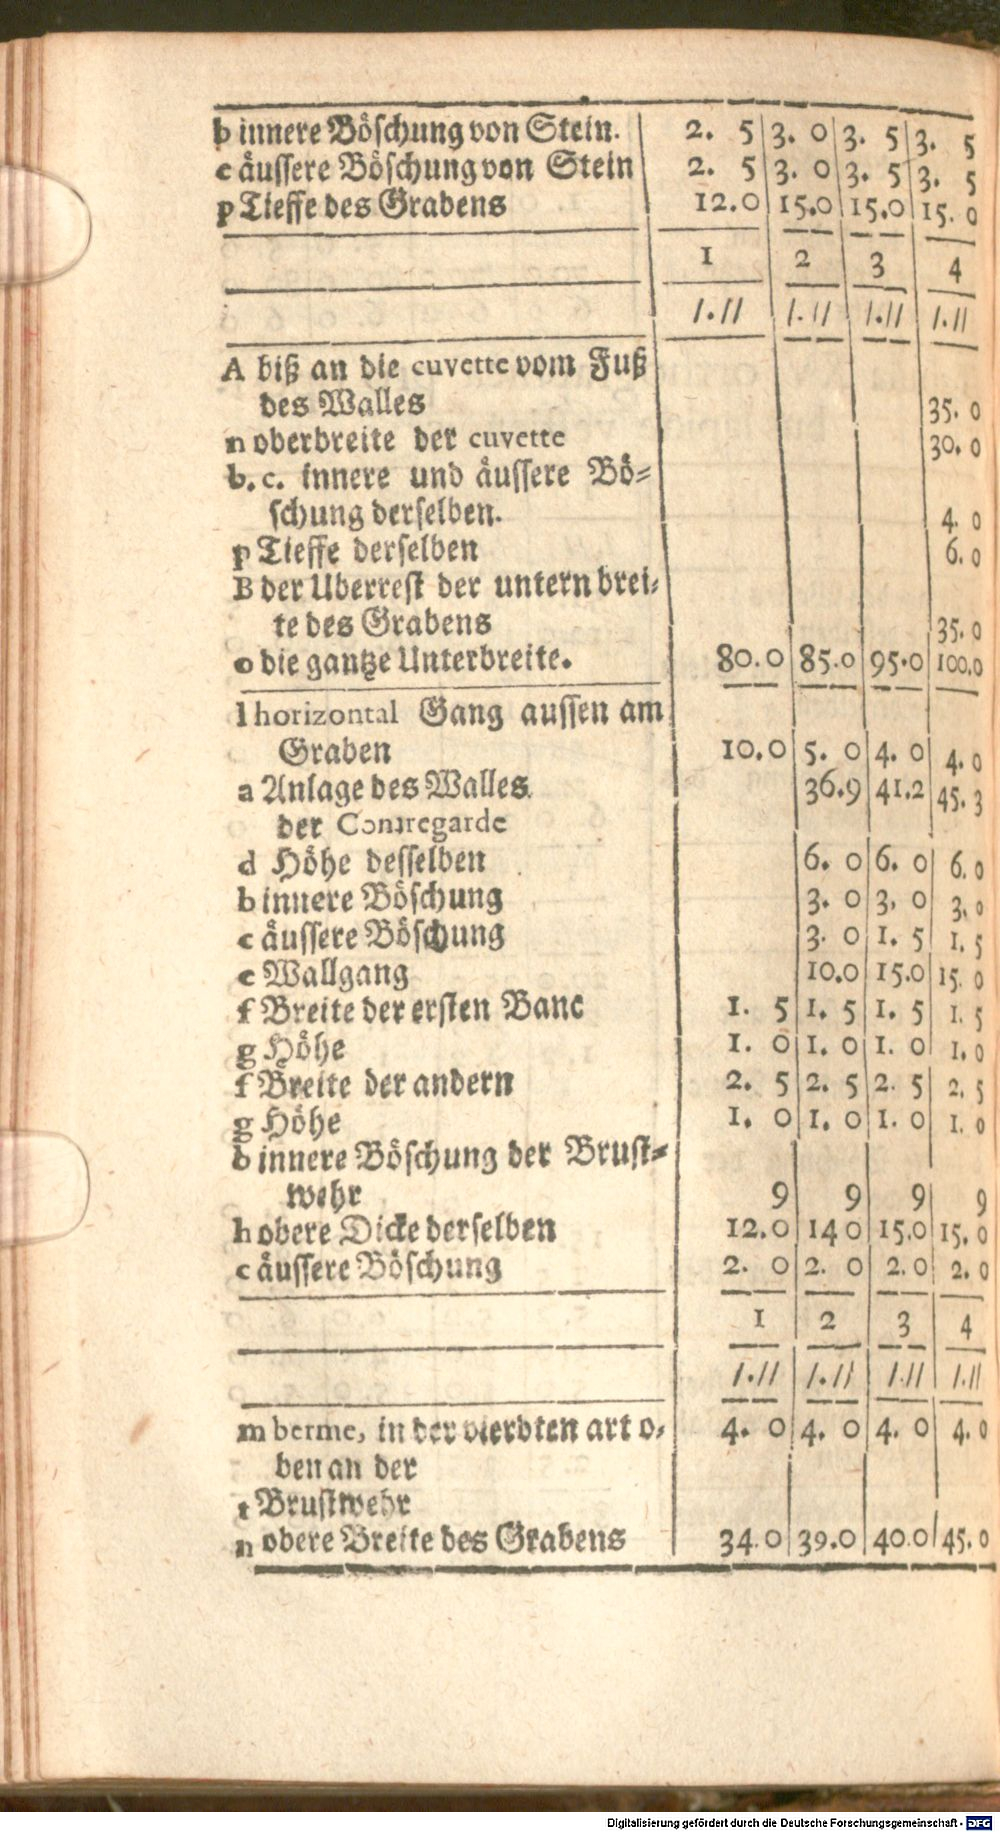 b innere Böschung von Stein. 2. 5 3. 0 3. 5 3. 5
c äussere Böschung von Stein 2. 5 3. 0 3. 5 3. 5
p Tieffe des Grabens 12.0 15.0 15.0 15. 0
1 2 3 4
/.// /.// /.// /.//
A biß an die cuvette vom Fuß
des Walles 35. 0
n oberbreite der cuvette 30. 0
b. c. innere und äussere Bö=
schung derselben. 4. 0
p Tieffe derselben 6. 0
B der Uberrest der untern brei=
te des Grabens 35. 0
o die gantze Unterbreite. 80.0 85.0 95.0 100.0
l horizontal Gang aussen am
Graben 10.0 5. 0 4. 0 4. 0
a Anlage des Walles. 36.9 41.2 45. 3
der Contregarde
d Höhe desselben 6. 0 6. 0 6. 0
b innere Böschung 3. 0 3, 0 3, 0
c äussere Böschung 3. 0 1. 5 1, 5
e Wallgang 10.0 15.0 15. 0
f Breite der ersten Banc 1. 5 1. 5 1. 5 1. 5
g Höhe 1. 0 1. 0 1. 0 1, 0
f Breite der andern 2. 5 2. 5 2. 5 2, 5
g Höhe 1. 0 1. 0 1. 0 1. 0
b innere Böschung der Brust=
wehr 9 9 9 9
h obere Dicke derselben 12.0 14 0 15.0 15. 0
c äussere Böschung 2. 0 2. 0 2. 0 2. 0
1 2 3 4
/.// /.// /.// /.//
m berme, in der vierdten art o= 4. 0 4. 0 4. 0 4. 0
ben an der
t Brustwehr
n obere Breite des Grabens 34.0 39.0 40.0 45. 0
Digitalisierung gefördert durch die Deutsche Forschungsgemeinschaft - DFG